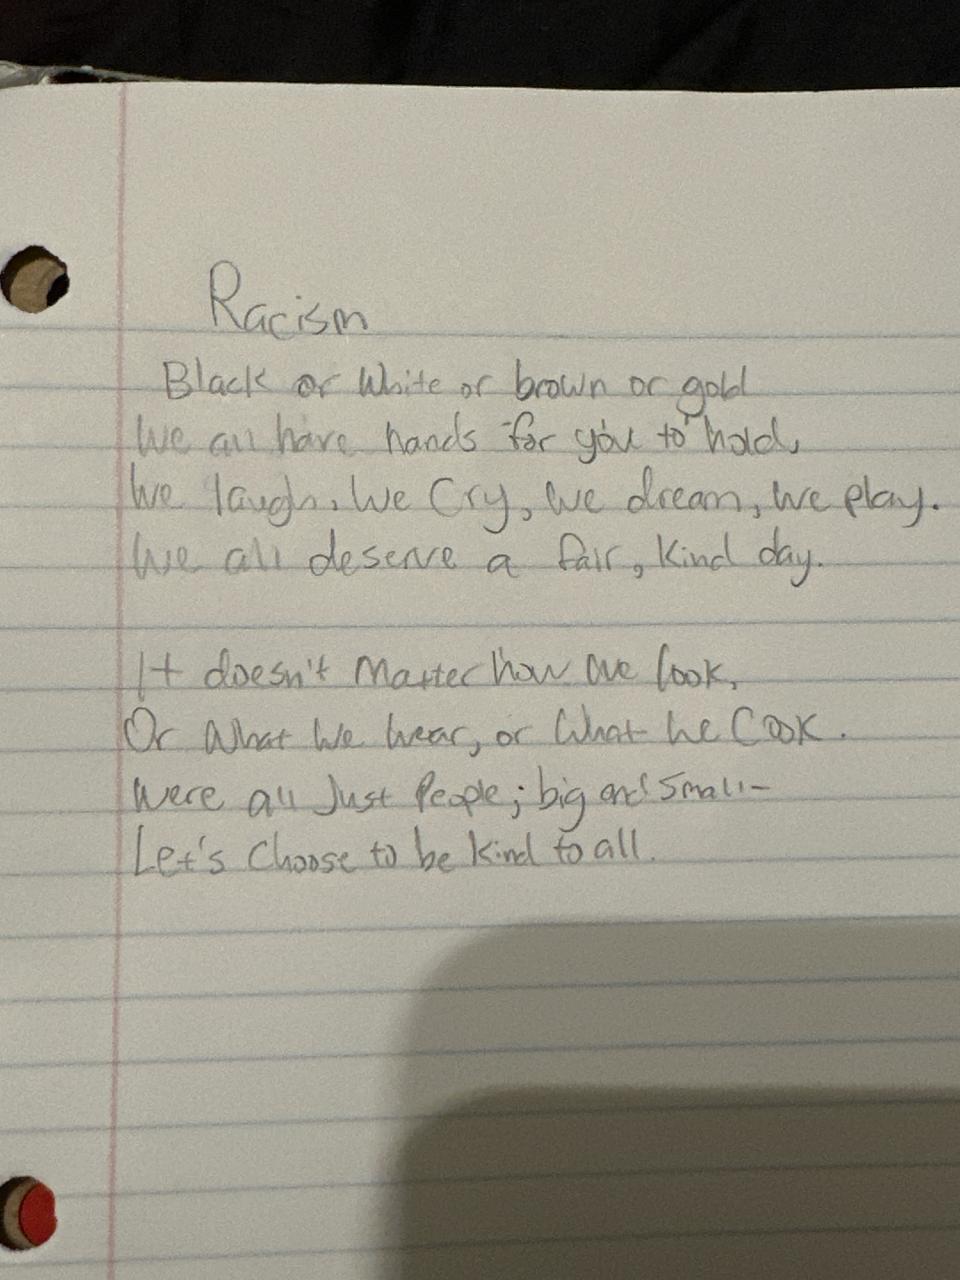 Racism
Black or White or brown or gold
We all have hands for you to hold,
We laugh, We Cry, we dream, we play.
We all deserve a fair, kind day.
It doesn't Matter how we look,
Or What We wear, or What we Cook.
Were all Just People; big and Small-
Let's Choose to be kind to all.